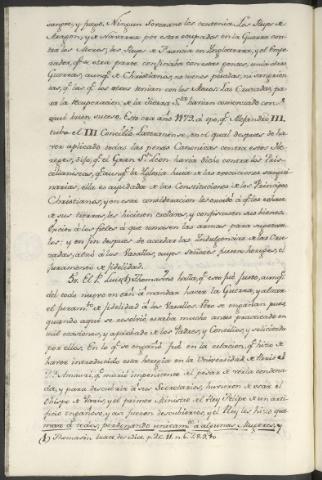 sangre, y fuego. Ningun Soberano los contenia. Los Reyes de
Aragon, y de Navarra por estar ocupados en la Guerra con-
tra los Moros; los Reyes de Francia en Inglaterra, y el Empe-
rador, qe. de otra parte confinaba con estas gentes, unia otras
Guerras, aunqe. de Christianos, no menos penidas, ni sangrien-
tas, qe. las qe. los otros tenian con los Moros. Las Cruzadas, pa-
ra la recuperacion de la tierra Sta. havian comenzado con
qual buen suceso. Esto era año 1179. a epo, qe. Alejandro III.
tubo el III Concilio Lateranense, en el qual despues de ha-
ver aplicado todas las penas Canonicas contra estos He-
reges, dijo, qe. el Gran Sn. Leon havia dicho contra los Pris-
cilianistas, qe. aunqe. la Iglesia huia de las execuciones sanguin-
arias, ella es ayudada de las Constituciones de los Principes
Christianos, y en esta consideracion los excitó à qe. los echasen
de sus tierras, les hiciesen esclavos, y confiscasen sus bienes.
Exortó à los fieles à que tomasen las armas para sujetar-
los; y en fin despues de acordar las Indulgencias de las Cru-
zadas, absolvió à los Vasallos, cuyos señores fuesen hereges, el
juramento de fidelidad.
El P. Luis (1) Thomasino dice, qe. esto fué justo, aunqe.
del todo nuevo en orden à mandar hacer la Guerra, y alzar
el juramto. de fidelidad à los Vasallos. Pero se engañan pues
quando aqui se resolvió, estaba mucho antes practicado en
mil ocasiones, y aprobado de los Padres, y Concilios, y solicitado
por ellos. En lo qe. se engañó fué en la relacion, qe. hizo de
haver introducido esta heregia en la Universidad de Paris
Amauri, qe. murió impenitente al pesar de verla condena-
da, y para descubrir à sus Secretarios, hicieron de usar el
Obispo de Paris, y el primer Ministro del Rey Felipe de un ar-
tificio engañoso, y asi fueron descubiertos, y el Rey les hizo que-
mar à todos, perdonando unicamte. à algunas Mugeres, y
(1) Thomasin.